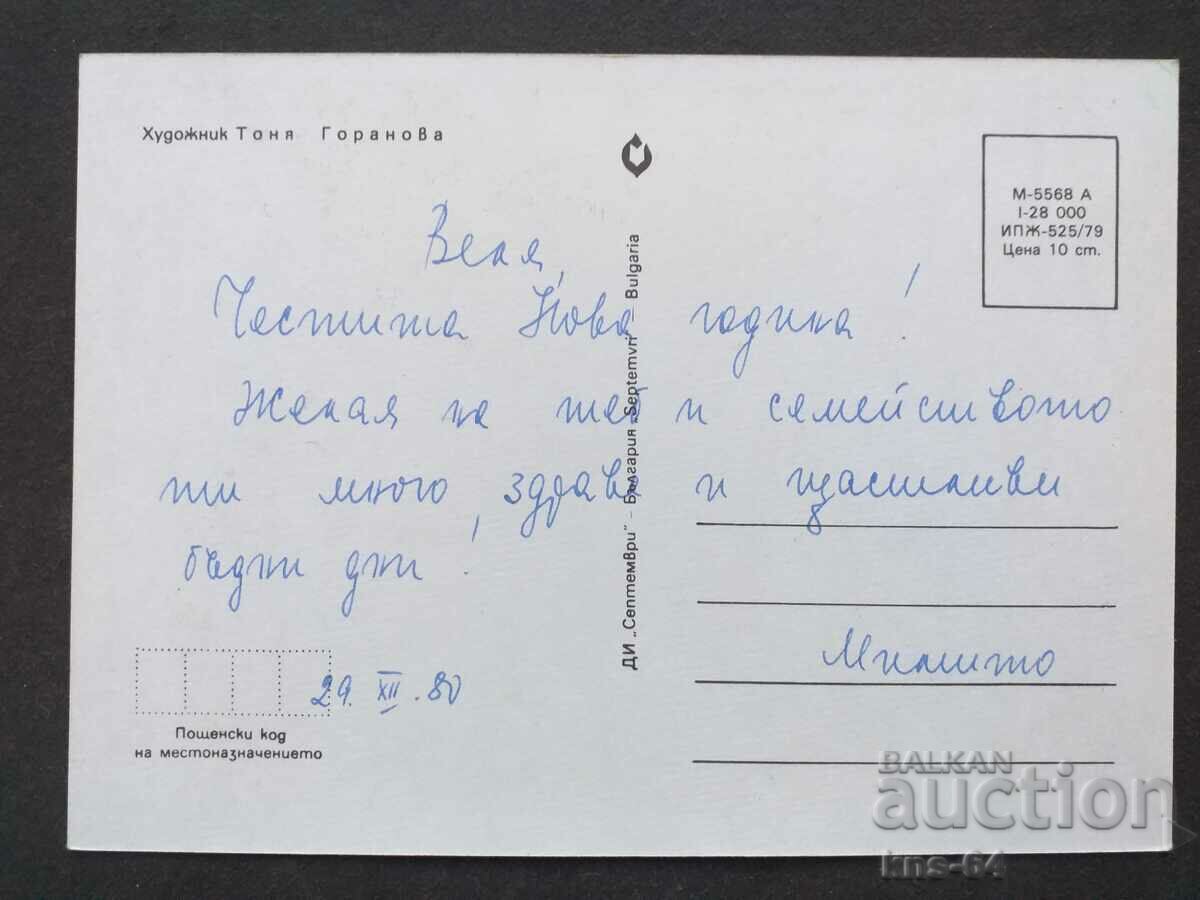 Художник Тоня Горанова
М-5568 А
I-28 000
ИПЖ-525/79
Цена 10 ст.
Веля,
Честита Нова година!
Желая на теб и семейството
ти много здраве и щастливи
бъдни дни!
29. XII. 80
Милито
Пощенски код
на местоназначението
ДИ „Септември" – България „Septemvri" – Bulgaria
BALKAN
auction
kns-64